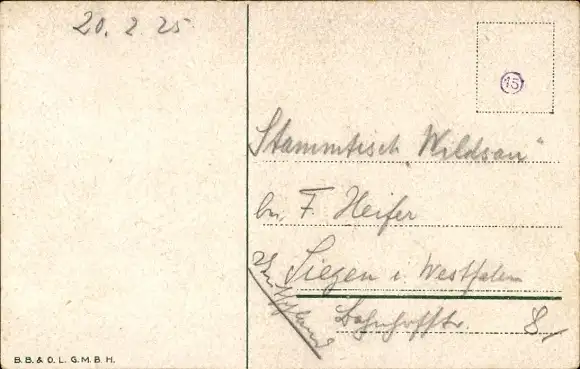 20. 2. 25
15
Stammtisch „Wildsau"
bei F. Heifer
Siegen i. Westfalen
Bahnhofstr. 8.
B.B. & O. L. G.M.B.H.